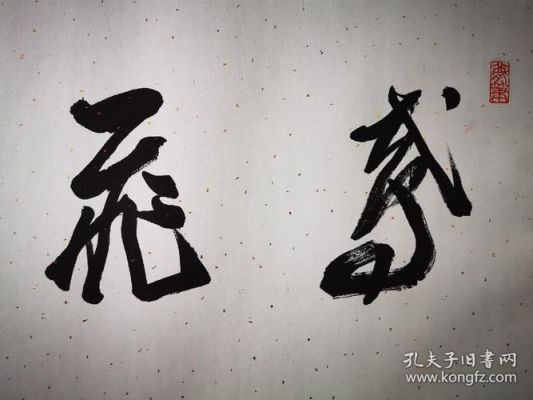 鸢飞
孔夫子旧书网
www.kongfz.com